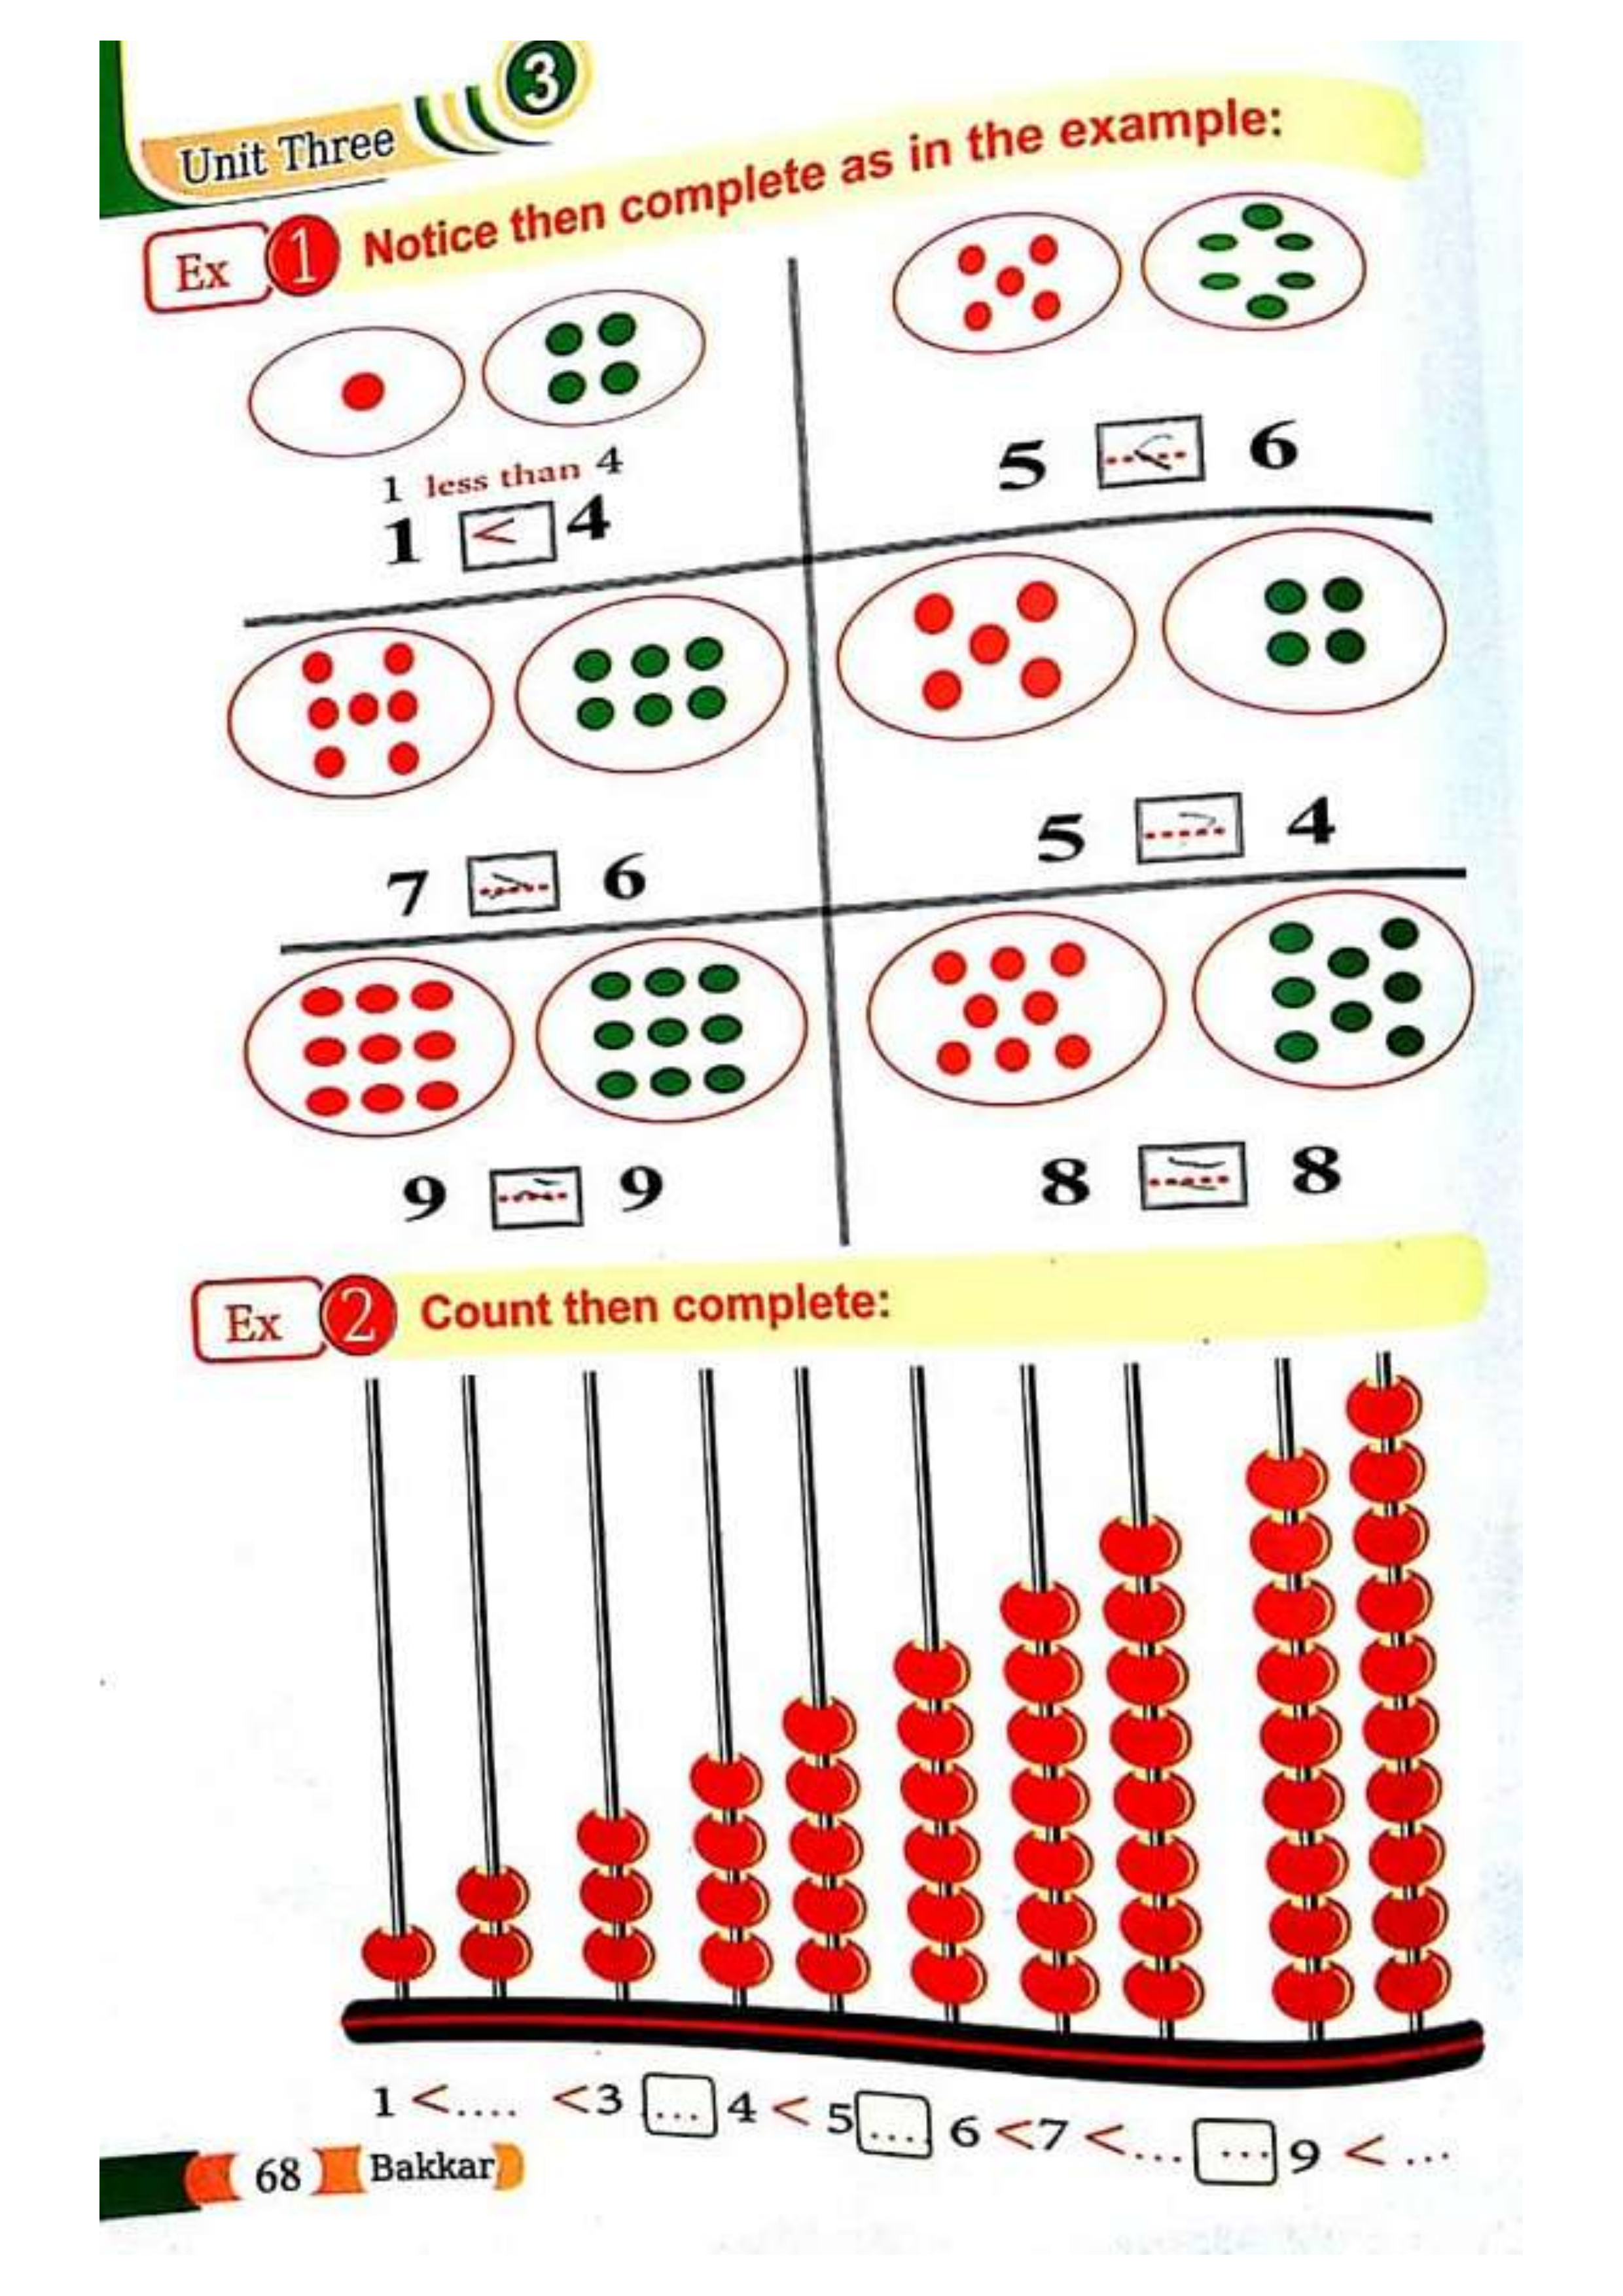 3
Unit Three
Ex 1 Notice then complete as in the example:
1 less than 4
1 < 4
5 < 6
7 > 6
5 > 4
9 9
8 = 8
Ex 2 Count then complete:
1 <.... <3 ... 4 < 5 ... 6 <7 <... ... 9 < ...
68 Bakkar